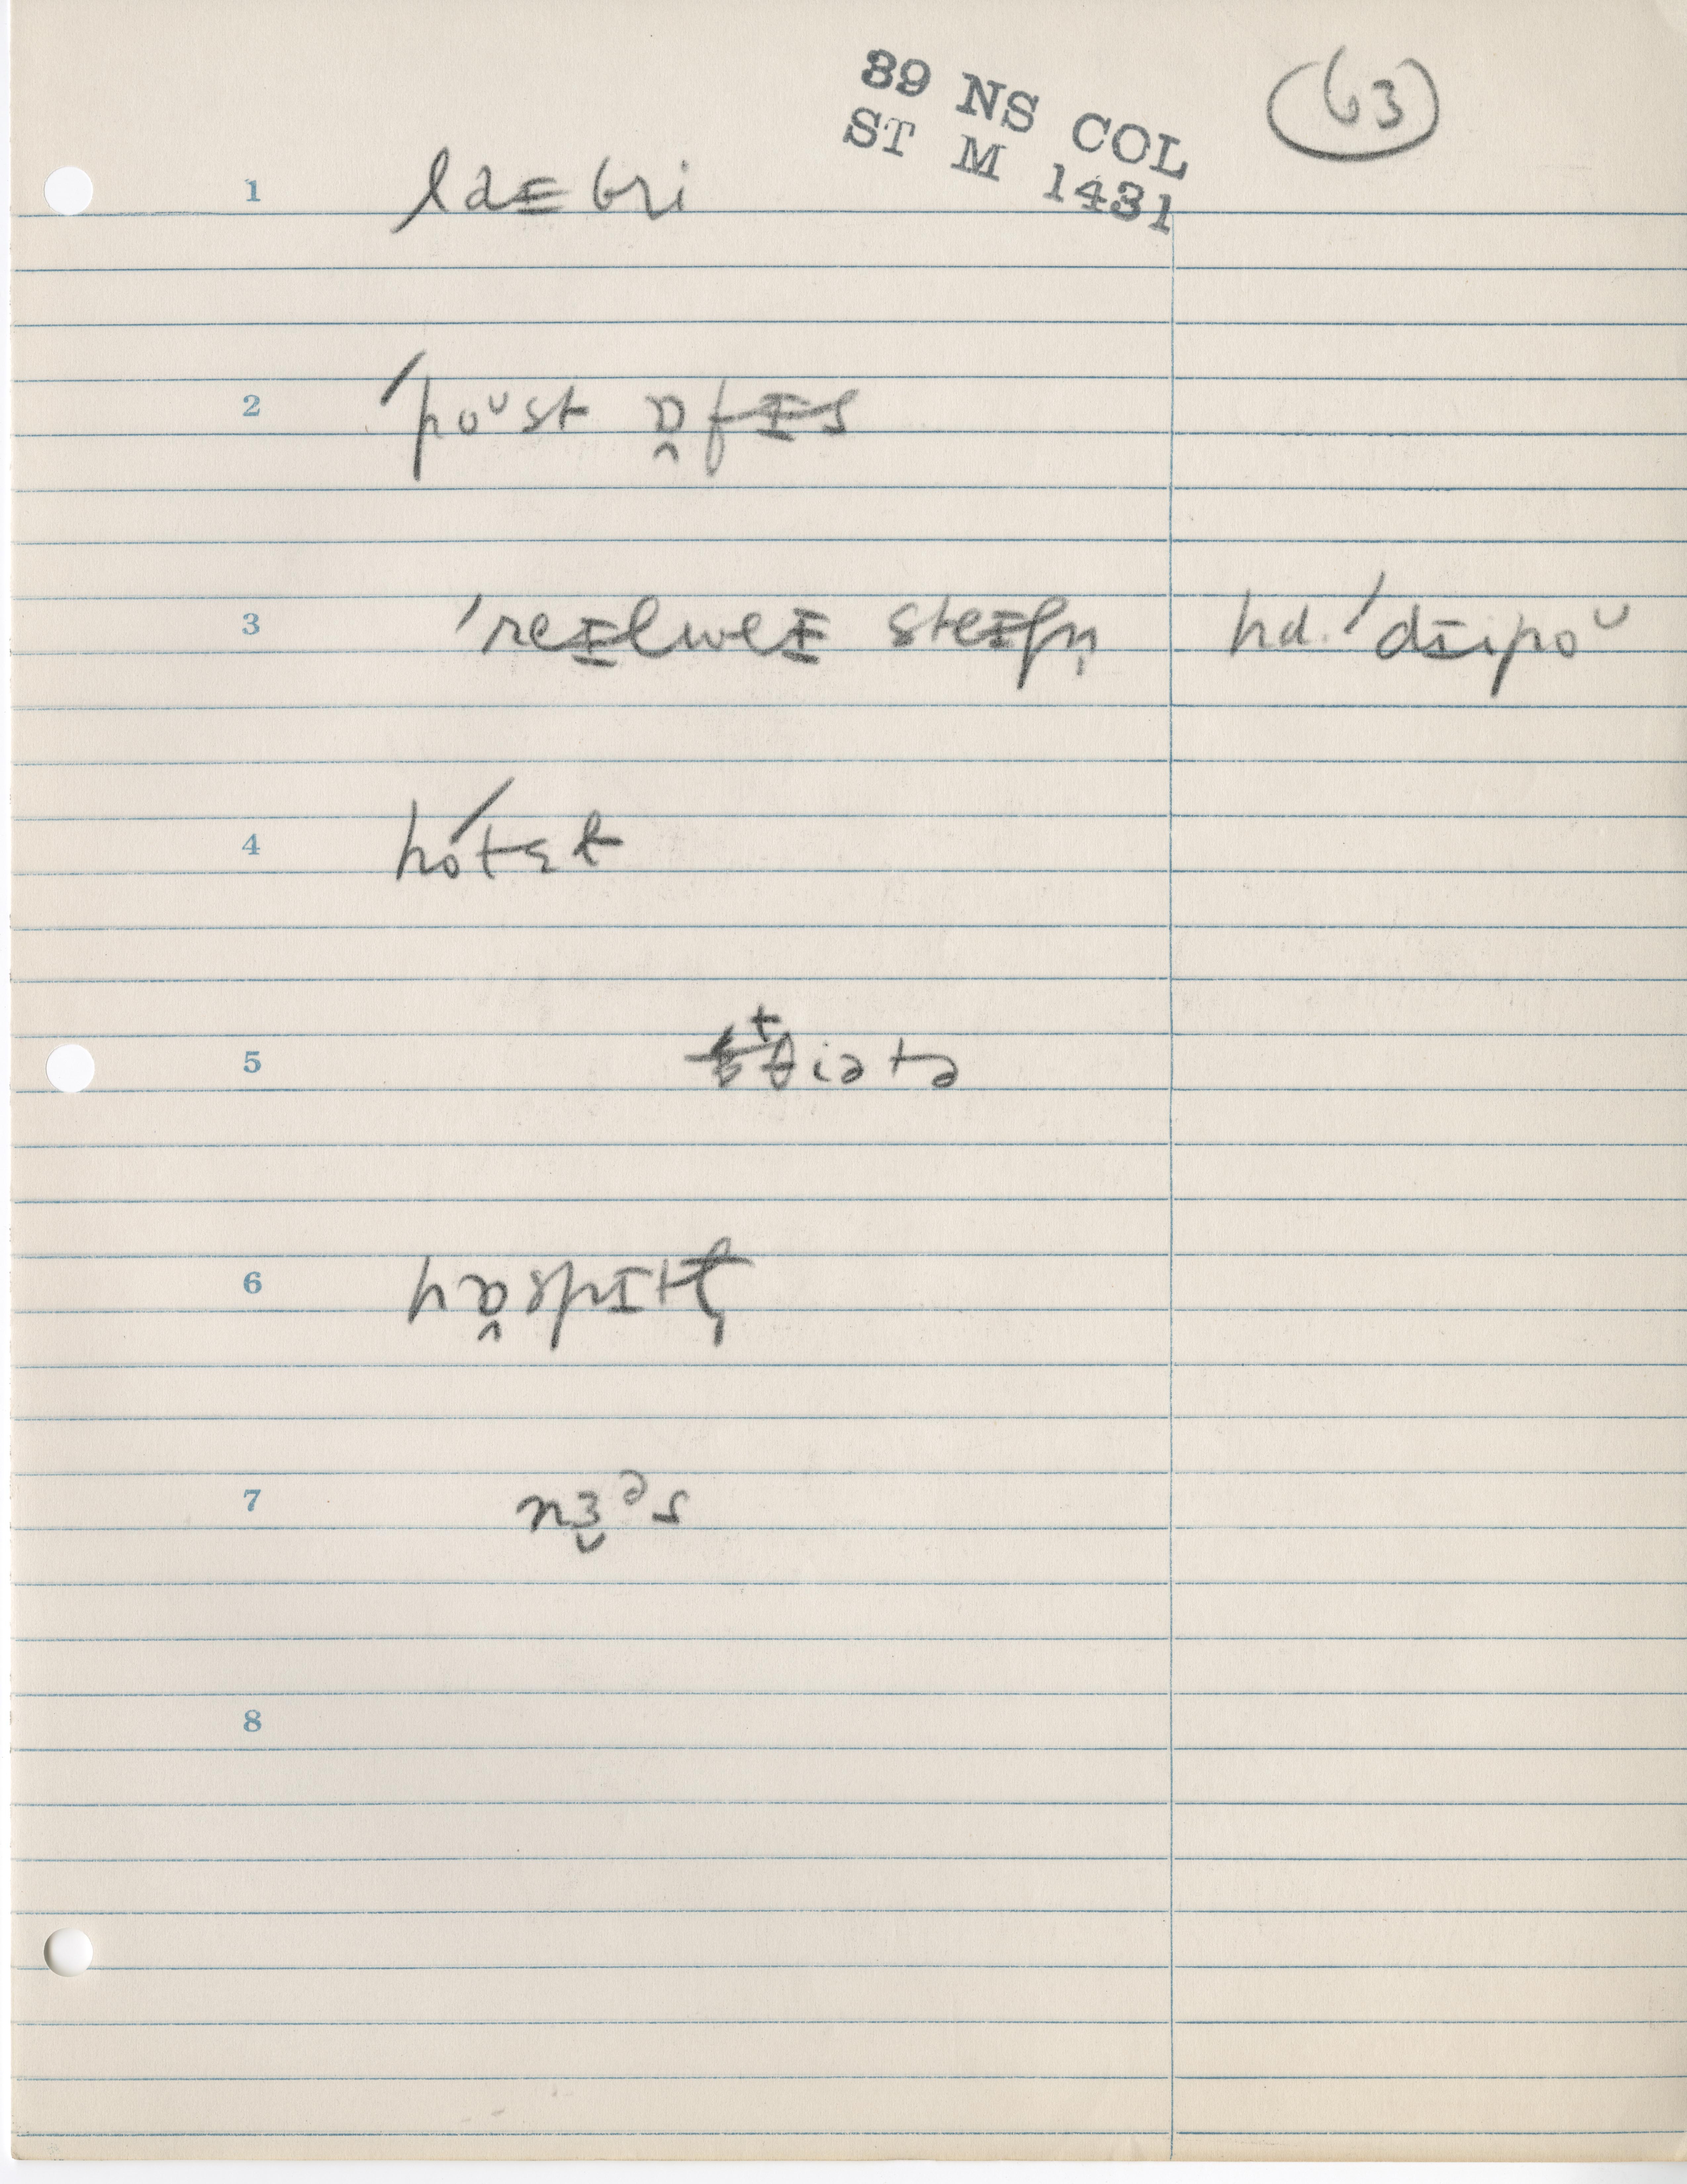 89 NS COL
ST M 1431
63
1 laɪbri
2 ˈpoᶷst ɒ̭fɪs
3 ˈreɪlweɪ steɪʃn̩ hd. ˈdɪipoᶷ
4 hoˊtɛɫ
5 θiətə
6 hɒ̭spɪtɫ̩
7 nɜ̬ᵊs
8